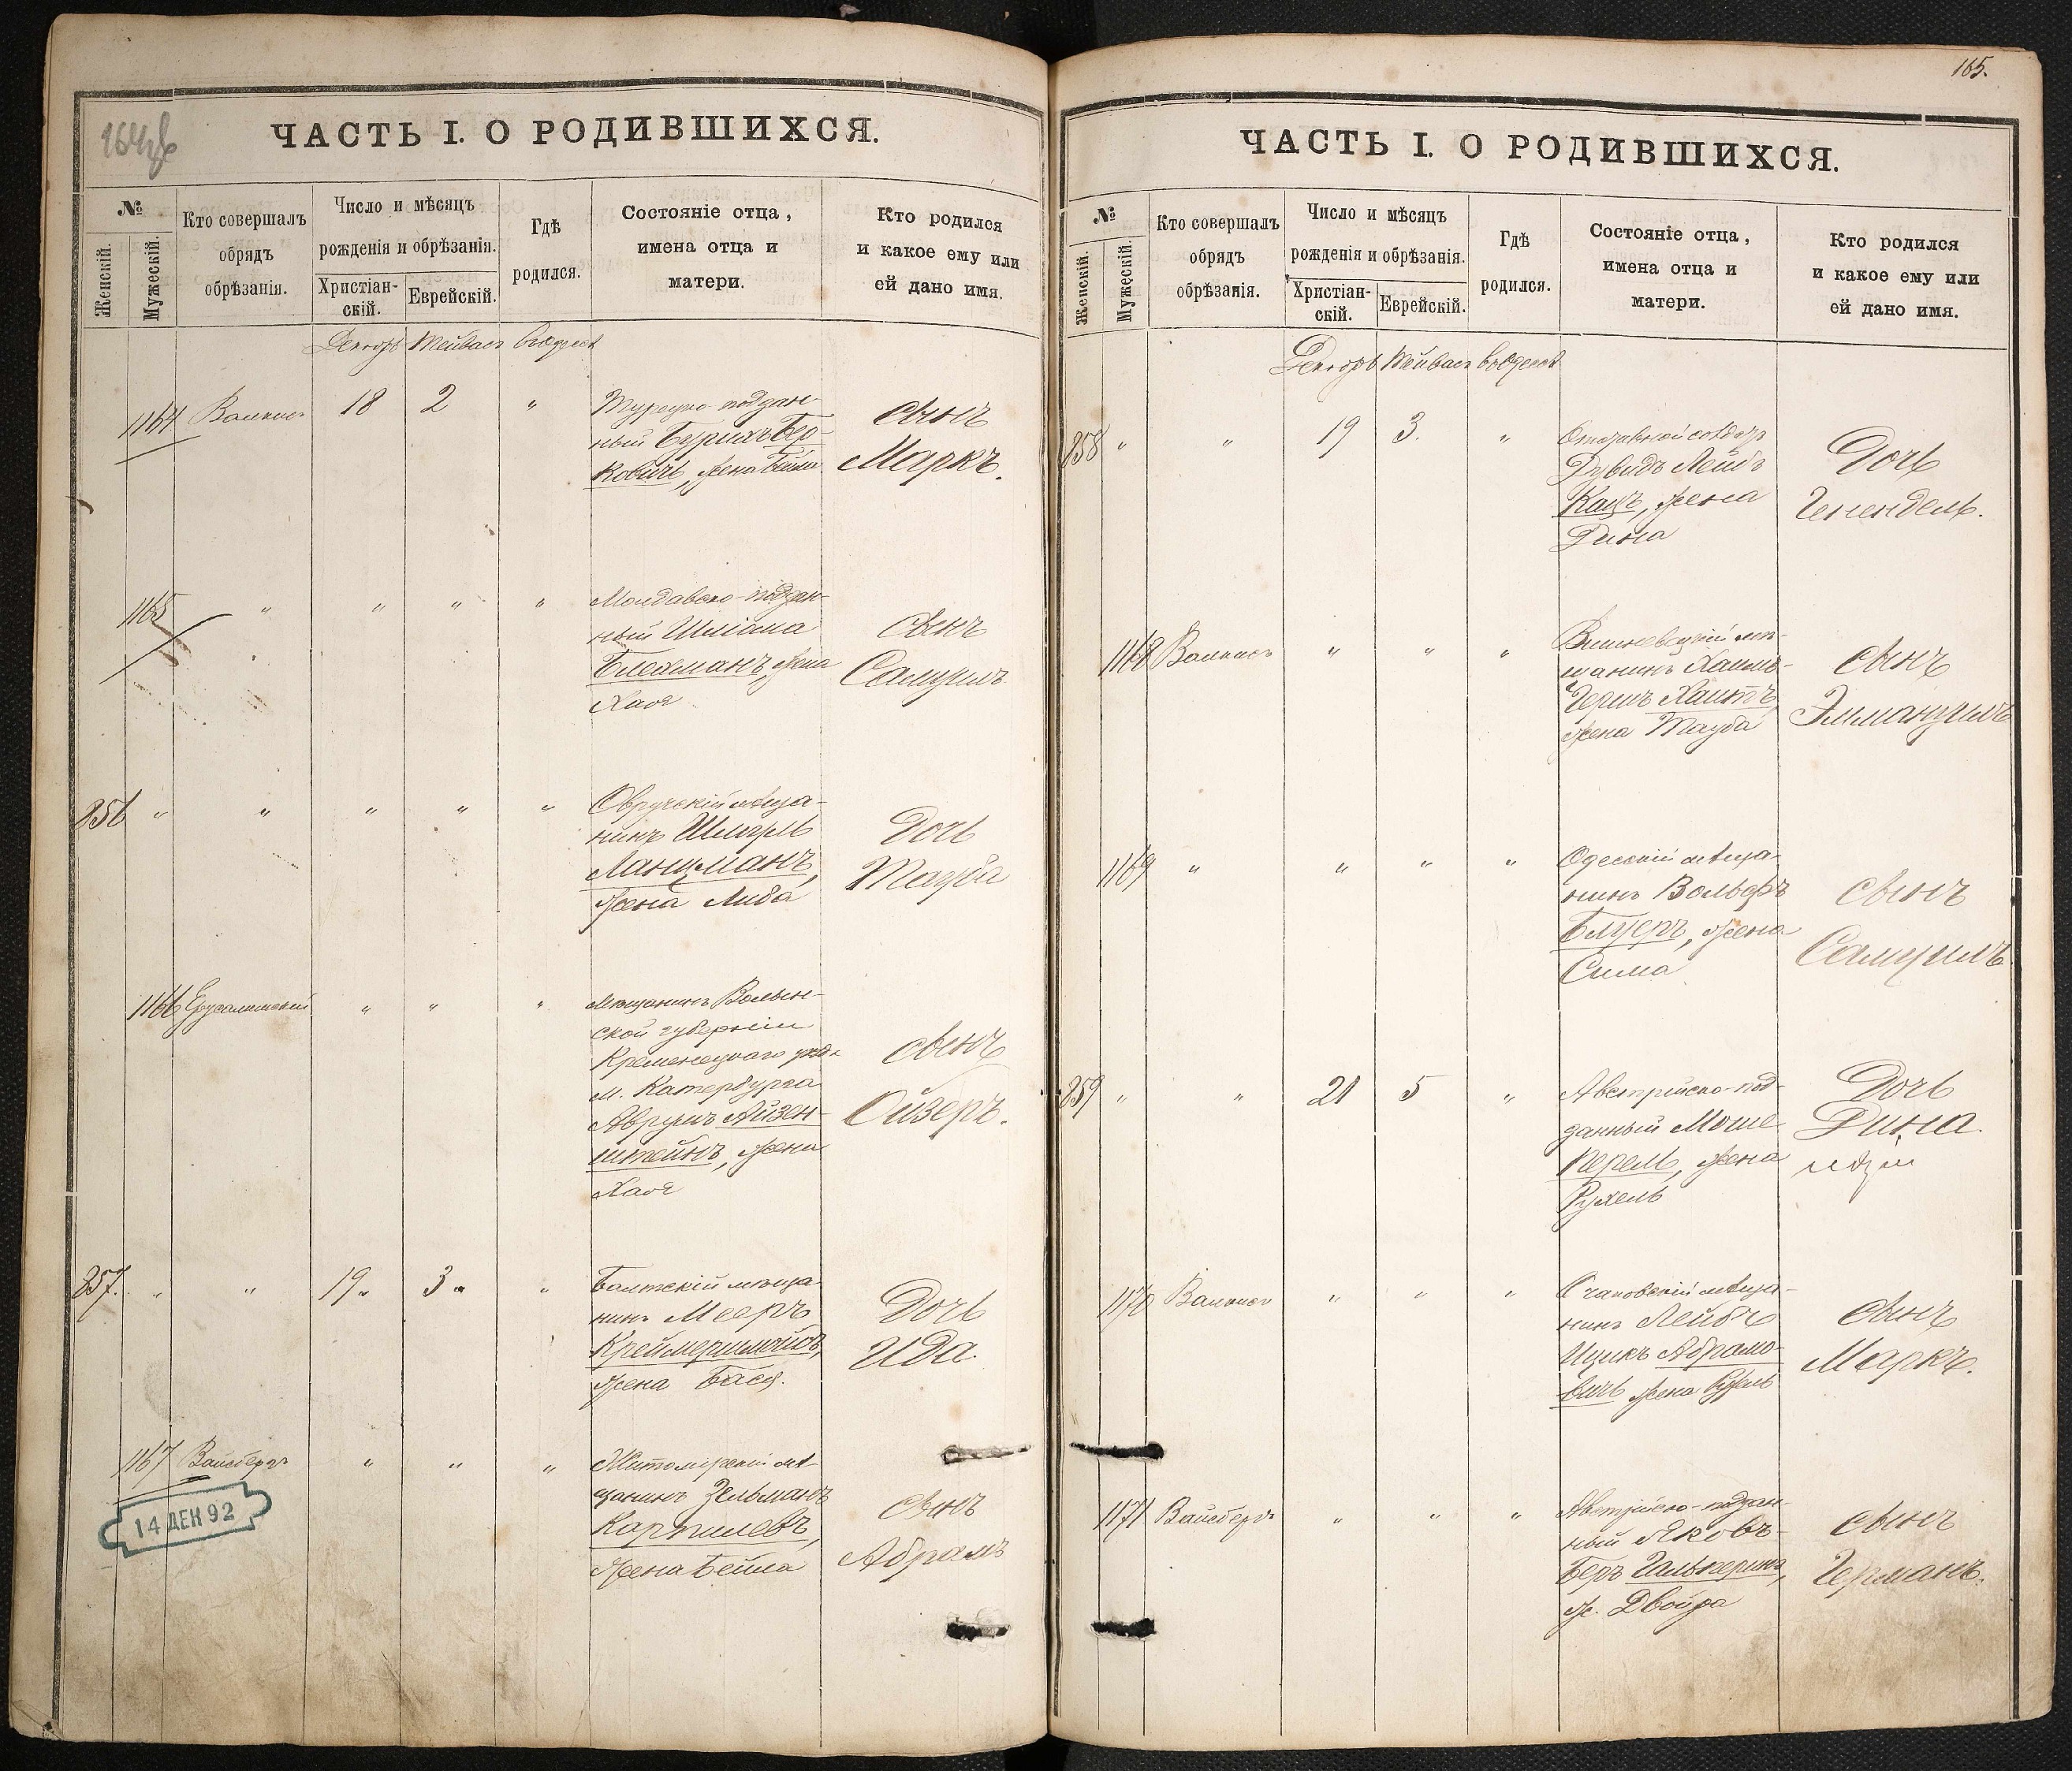 164об
ЧАСТЬ I. О РОДИВШИХСЯ.
№
Женскій.
Мужескій.
Кто совершалъ
обрядъ
обрѣзанія.
Число и мѣсяцъ
рожденія и обрѣзанія.
Христіан-
скій.
Еврейскій.
Гдѣ
родился.
Состояніе отца,
имена отца и
матери.
Кто родился
и какое ему или
ей дано имя.
Декабрь Тейвасъ въ Одессѣ
1164 18 2 "
Турецко-поддан-
ный Берихъ Бер-
ковичъ, жена Бейла
сынъ
Маркъ.
1165 " " " "
Молдавско-поддан-
ный Шліома
Блехманъ, жена
Хая
сынъ
Самуилъ
856 " " " " "
Овручскій мѣща-
нинъ Шмуль
Ланцманъ,
жена Либа
дочь
Тауба
1166 Ерусалимскій " " "
Мѣщанинъ Волын-
ской губерніи
Кременецкаго уѣзда
м. Катербурга
Аврумъ Айзен-
штейнъ, жена
Хая
сынъ
Ойзеръ.
857. " " 19 " 3 " "
Балтскій мѣща-
нинъ Мееръ
жена Бася.
Дочь
Ида.
1167 Вайсбергъ " " "
Житомірскій мѣ-
щанинъ Зельманъ
Карпилевъ,
жена Бейла
сынъ
Абрамъ
14 ДЕК 92
165.
ЧАСТЬ I. О РОДИВШИХСЯ.
№
Женскій.
Мужескій.
Кто совершалъ
обрядъ
обрѣзанія.
Число и мѣсяцъ
рожденія и обрѣзанія.
Христіан-
скій.
Еврейскій.
Гдѣ
родился.
Состояніе отца,
имена отца и
матери.
Кто родился
и какое ему или
ей дано имя.
Декабрь Тейвасъ въ Одессѣ
858 " " 19 3. "
Отставной солдатъ
Дувидъ Лейбъ
Кацъ, жена
Дина
Дочь
Генендель.
1168 " " "
Вишневецкій мѣ-
щанинъ Хаимъ-
Гершъ
жена Тауба
сынъ
Эммануилъ
1169 " " " "
Одесскій мѣща-
нинъ Вольфъ
Блуеръ, жена
Сима
сынъ
Самуилъ
859 " " 21 5 "
Австрійско-под-
данный Моше
Перель, жена
Рухель
Дочь
Дина.
1170 " " "
Очаковскій мѣща-
нинъ Лейбъ
Ицикъ Абрамо-
вичъ жена Рухель
сынъ
Маркъ.
1171 Вайсбергъ " " "
Австрійско-поддан-
ный Яковъ-
Беръ Гальперинъ,
ж. Двойра
сынъ
Германъ.